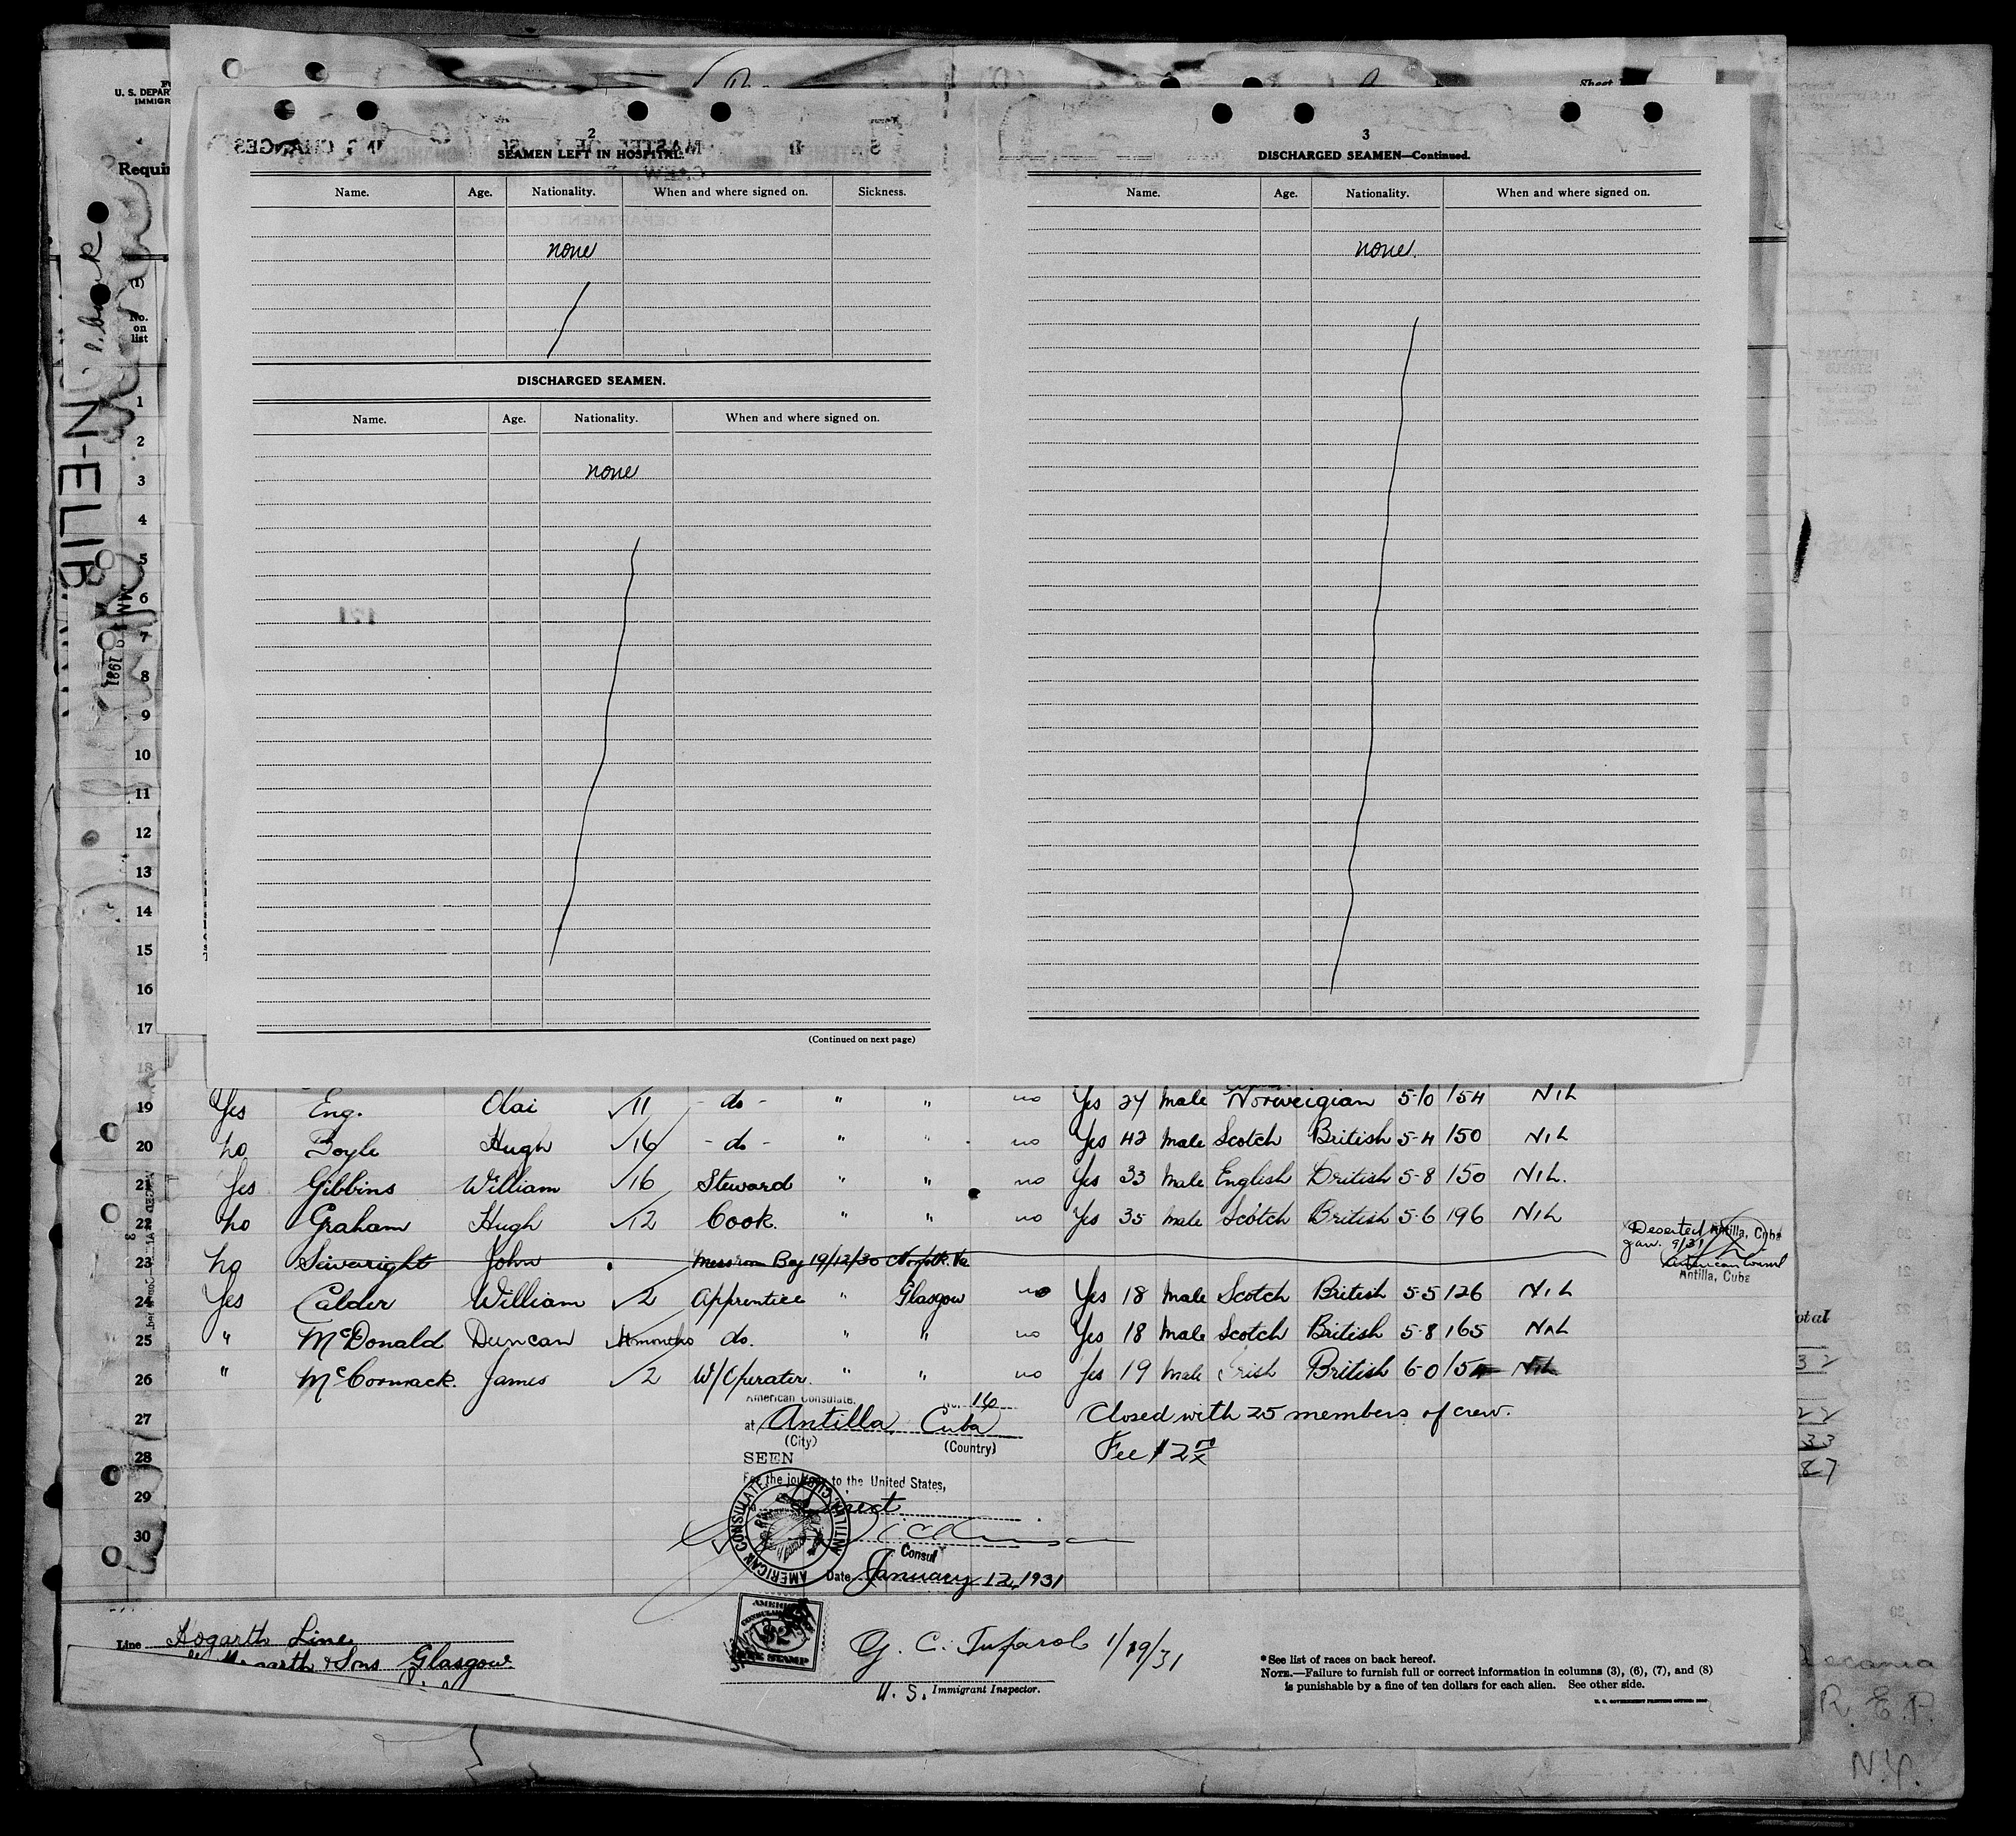 U. S. DEPAR
IMMIGR
Sheet
Requir
(1)
No.
on
list
2
SEAMEN LEFT IN HOSPITAL.
Name. Age. Nationality. When and where signed on. Sickness.
none
DISCHARGED SEAMEN.
Name. Age. Nationality. When and where signed on.
none
(Continued on next page)
3
DISCHARGED SEAMEN—Continued.
Name. Age. Nationality. When and where signed on.
none.
1
2
3
4
5
6
7
8
9
10
11
12
13
14
15
16
17
18
19 Yes Eng. Olai √11 - do - " " no Yes 24 Male Norweigian 5-10 154 NIL
20 no Hugh √16 - do - " " no Yes 42 Male Scotch British 5-4 150 NIL
21 Yes Gibbins William √16 Steward " " no Yes 33 Male English British 5-8 150 NIL.
22 no Graham Hugh √12 Cook. " " no Yes 35 Male Scotch British 5-6 196 NIL
Deserted Antilla, Cuba
Jan. 9/31
23 no Sivewright John Messroom Boy 19/12/30 Norfolk. Va
American Consul
Antilla, Cuba
24 Yes Calder William √2 Apprentice " Glasgow no Yes 18 Male Scotch British 5-5 126 NIL
25 " McDonald Duncan months do. " " no Yes 18 Male Scotch British 5-8 165 NIL
26 " McCormack. James √2 W/Operater. " " no Yes 19 Male Irish British 6-0 NIL
American Consulate, No. 16
27 at Antilla, Cuba Closed with 25 members of crew.
(City) (Country) Fee $2
28 SEEN
For the journey to the United States,
29 Direct
30
Consul
Date January 12, 1931
AMERICAN CONSULATE ANTILLA, CUBA
Line Hogarth Line
Hogarth & Sons Glasgow.
FEE STAMP
G. C. 1/19/31
U. S. Immigrant Inspector.
*See list of races on back hereof.
NOTE.—Failure to furnish full or correct information in columns (3), (6), (7), and (8)
is punishable by a fine of ten dollars for each alien. See other side.
otal
32
33
87
R. E. P.
N.Y.